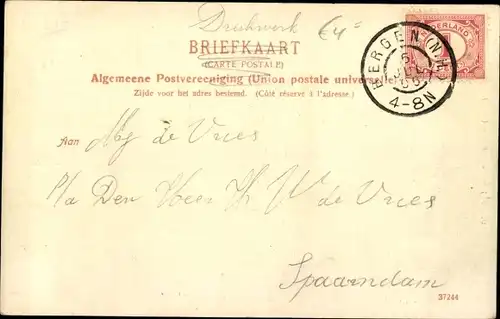 Drukwerk €4=
BRIEFKAART
(CARTE POSTALE)
Algemeene Postvereeniging (Union postale universelle)
Zijde voor het adres bestemd. (Côté réservé à l'adresse.)
NEDERLAND
BERGEN (N.H.)
4-8N
Aan Mej de Vries
p/a Den Heer H W de Vries
Spaarndam
37244